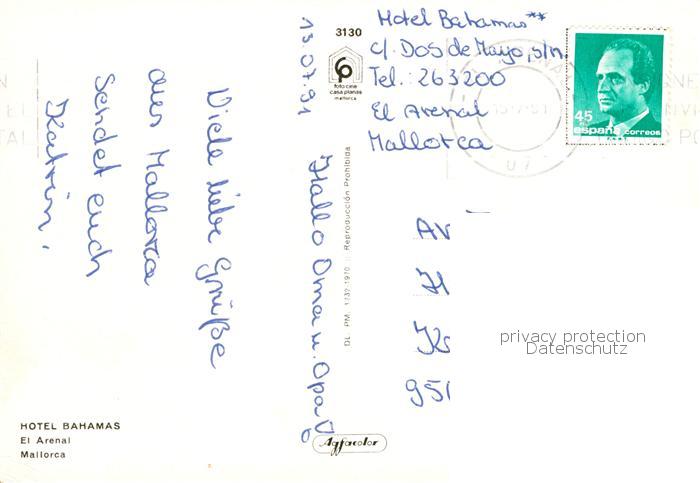 13.07.91
Hallo Oma u. Opa
Viele liebe Grüße
aus Mallorca
Sendet euch
Katrin.
HOTEL BAHAMAS
El Arenal
Mallorca
3130
foto cine
casa planas
mallorca
DL. PM. 1732-1970 Reproducción Prohibida
Agfacolor
Hotel Bahamas**
c/. Dos de Mayo, s/n
Tel.: 263200
El Arenal
Mallorca
45
españa correos
07
An
H
Kr
951
privacy protection
Datenschutz